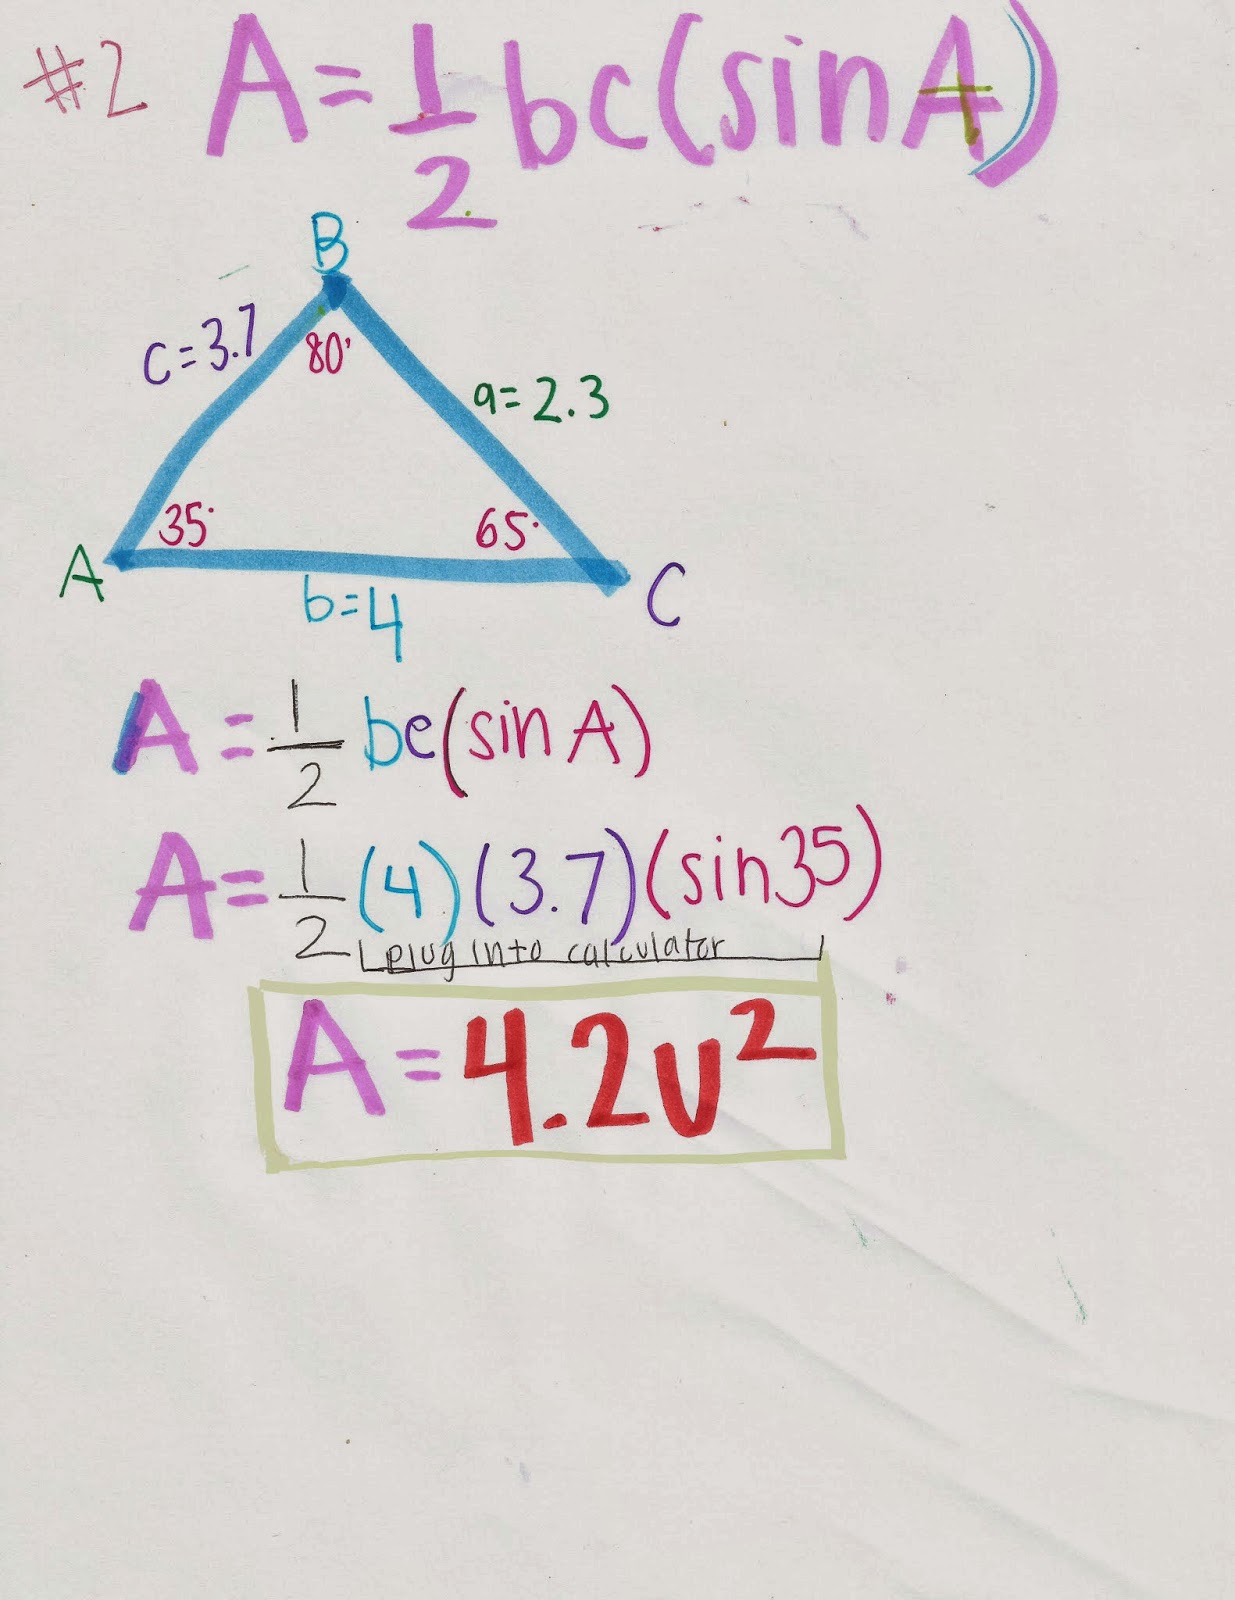 #2 A = 1/2 bc(sin A)
B
c=3.7
80°
a=2.3
35°
65°
A
C
b=4
A = 1/2 bc(sin A)
A = 1/2 (4)(3.7)(sin 35)
plug into calculator
A = 4.2u²